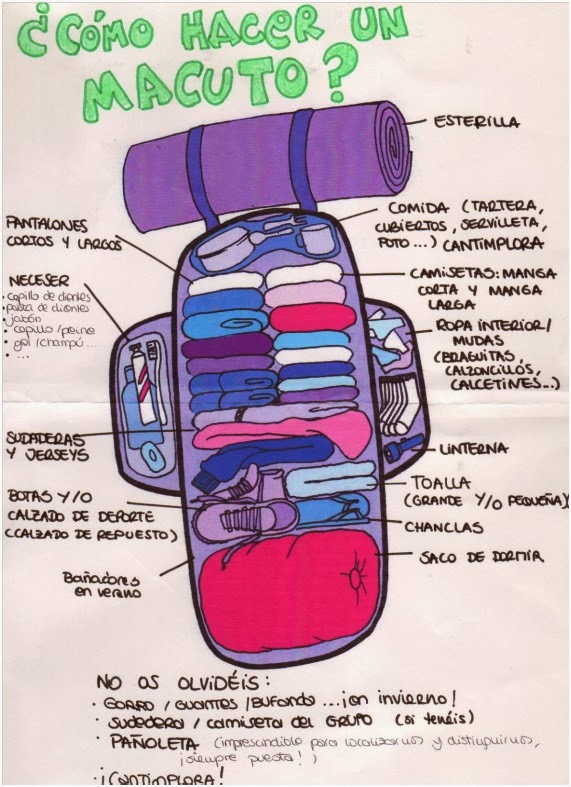 ¿CÓMO HACER UN
MACUTO?
ESTERILLA
COMIDA (TARTERA,
CUBIERTOS, SERVILLETA,
POTO...) CANTIMPLORA
PANTALONES
CORTOS Y LARGOS
CAMISETAS: MANGA
CORTA Y MANGA
LARGA
NECESER
· cepillo de dientes
· pasta de dientes
· jabón
· cepillo/peine
· gel/champú...
· ...
ROPA INTERIOR/
MUDAS
(BRAGUITAS,
CALZONCILLOS,
CALCETINES...)
SUDADERAS
Y JERSEYS
LINTERNA
TOALLA
(GRANDE Y/O PEQUEÑA)
BOTAS Y/O
CALZADO DE DEPORTE
(CALZADO DE REPUESTO)
CHANCLAS
SACO DE DORMIR
Bañadores
en verano
NO OS OLVIDÉIS:
· GORRO / GUANTES / BUFANDA ...¡en invierno!
· Sudadera / camiseta del GRUPO (si tenéis)
· PAÑOLETA (imprescindible para localizarnos y distinguirnos,
¡siempre puesta!)
· ¡CANTIMPLORA!